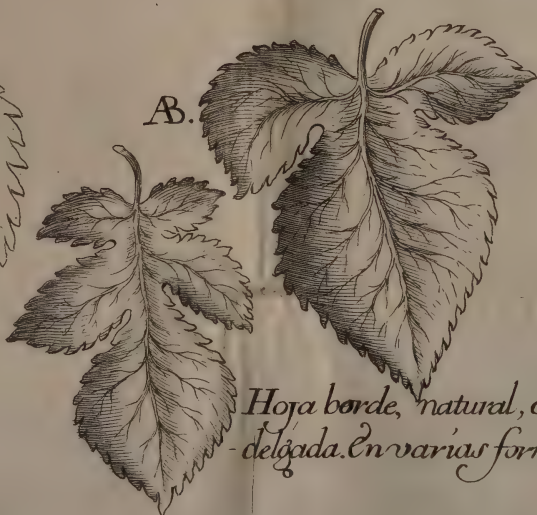 AB.
Hoja borde, natural,
delgada. En varias